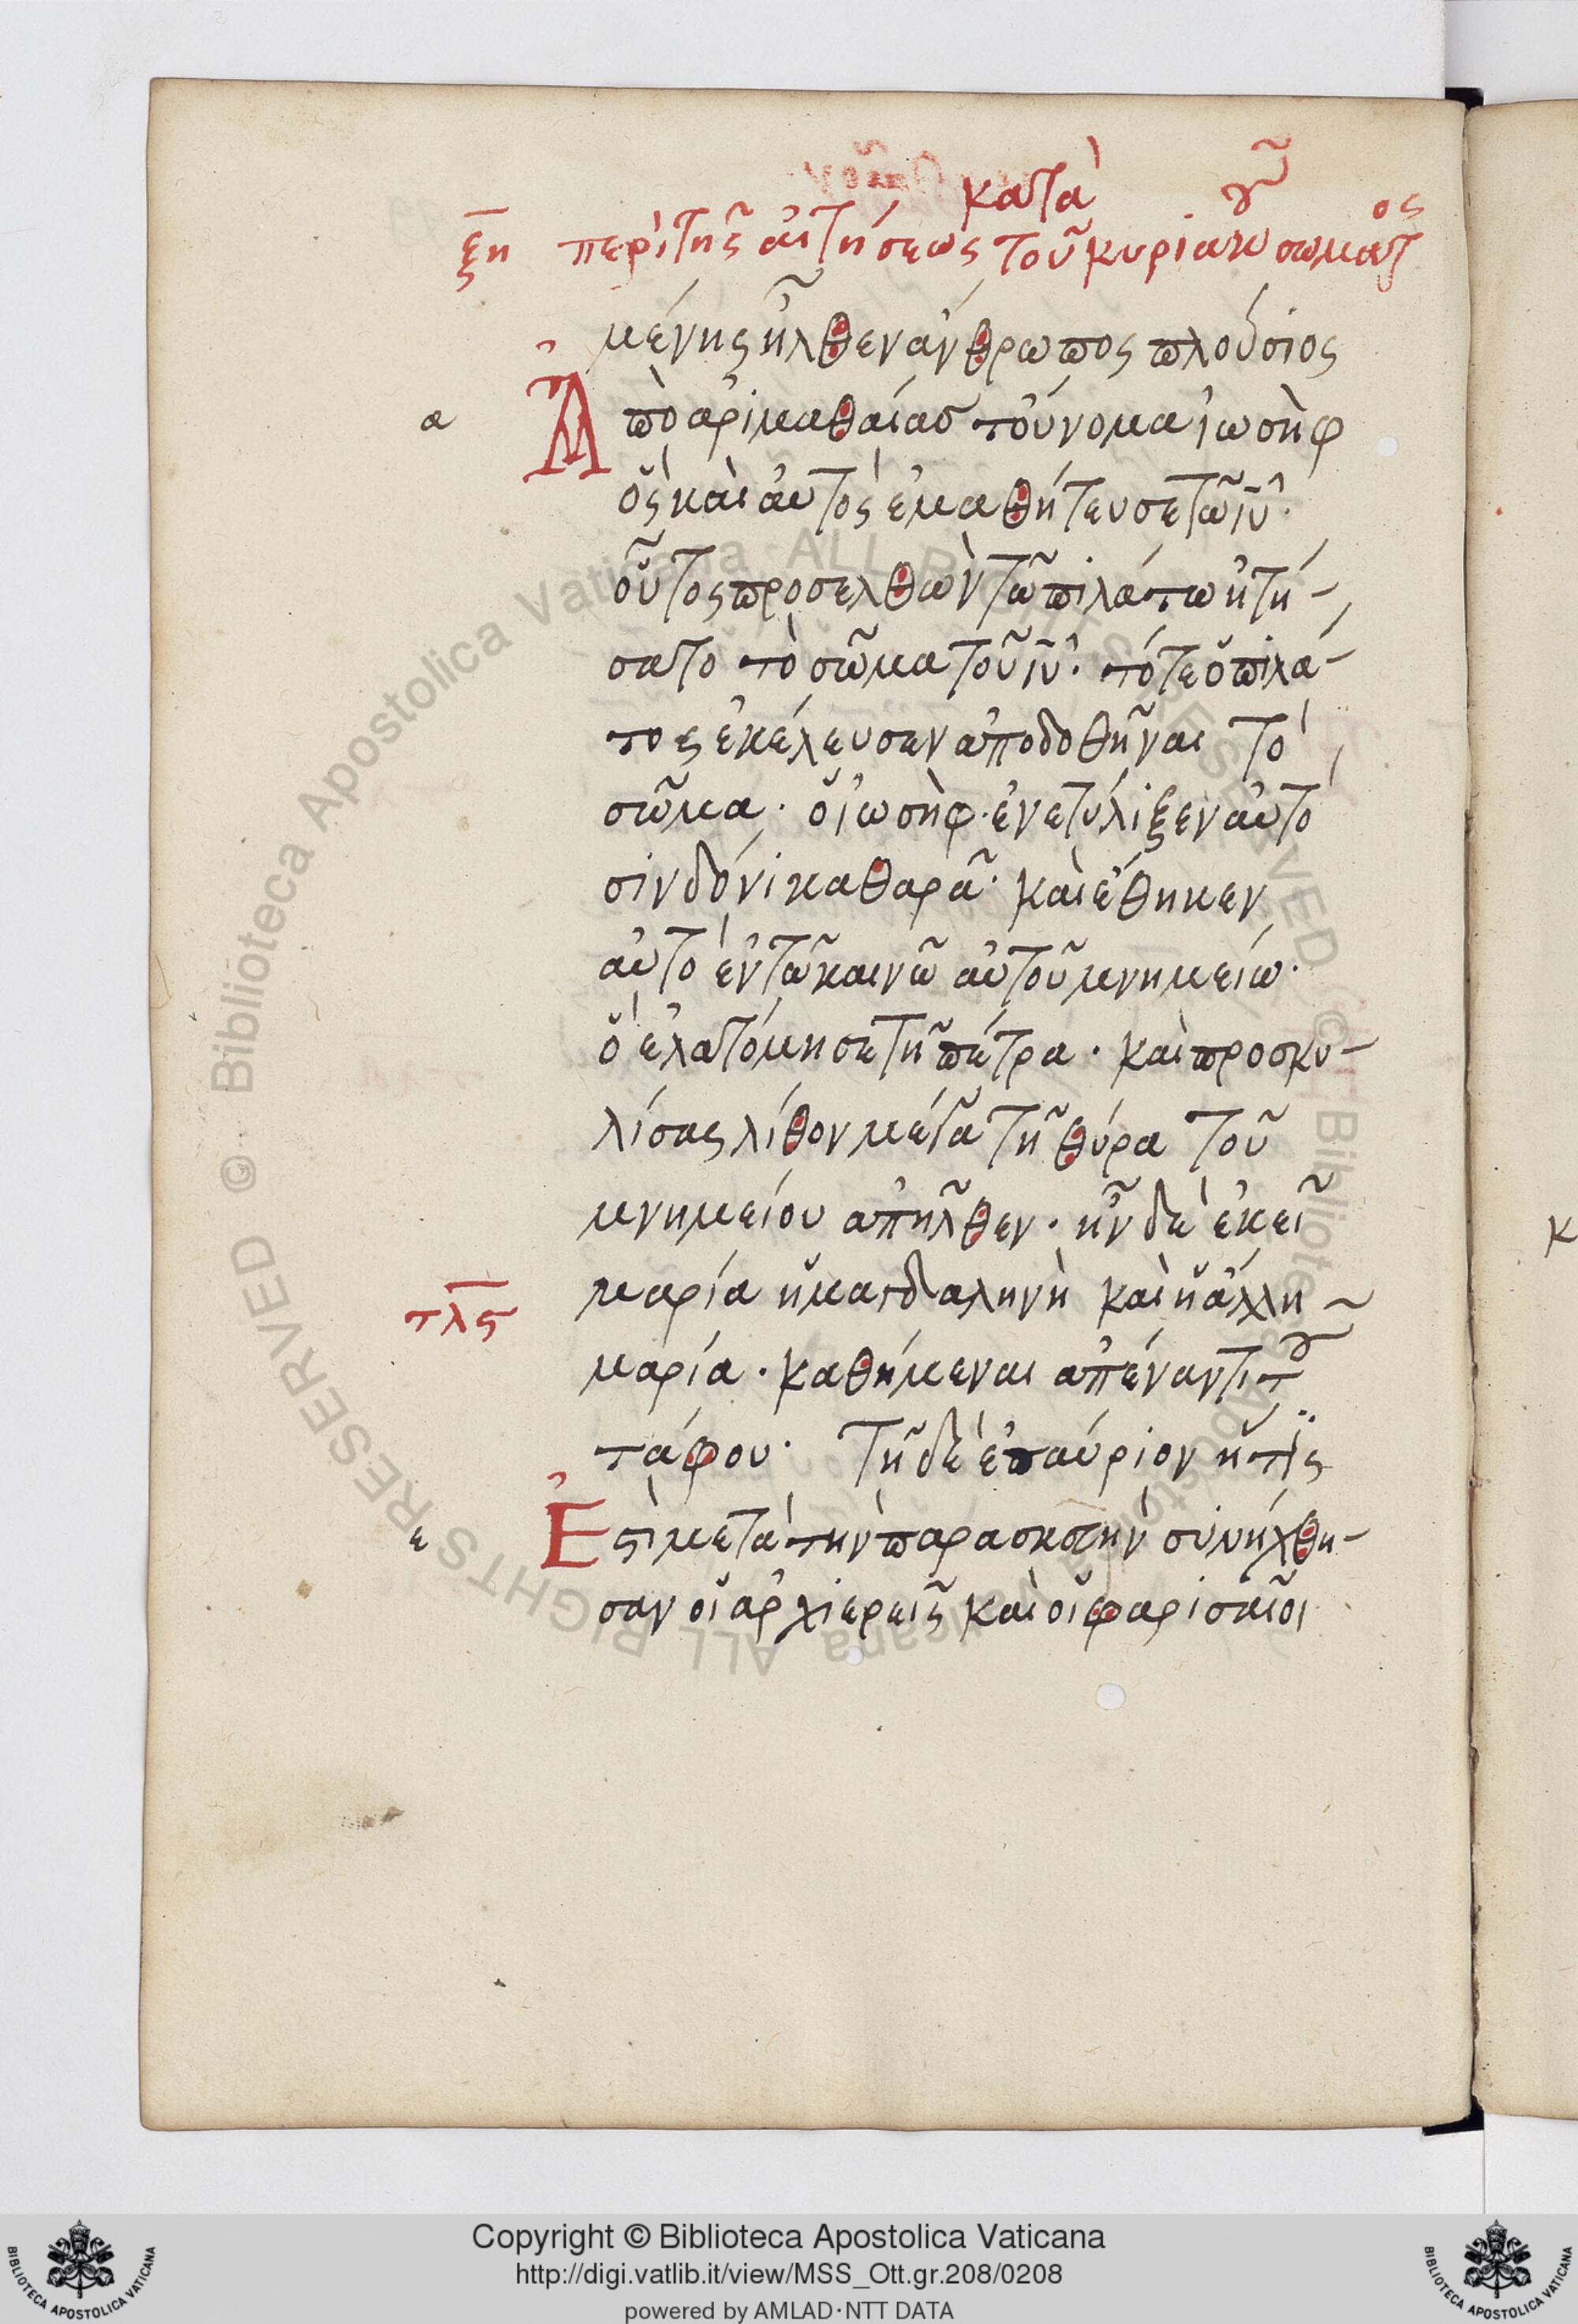 κατὰ
ξη περὶ τῆς αἰτήσεως τοῦ κυριακοῦ σώματος
μένης ἦλθεν ἄνθρωπος πλούσιος
α Ἀπὸ ἀριμαθαίας τοὔνομα ἰωσὴφ
ὃς καὶ αὐτὸς ἐμαθήτευσε τῶ ἰυ·
οὗτος προσελθὼν τῶ πιλάτω ἠτή-
σατο τὸ σῶμα τοῦ ἰυ· τότε ὁ πιλά-
τος ἐκέλευσεν ἀποδοθῆναι τὸ
σῶμα· ὁ ἰωσὴφ· ἐνετύλιξεν αὐτὸ
σινδόνι καθαρᾶ· καὶ ἔθηκεν
αὐτὸ ἐν τῶ καινῶ αὐτοῦ μνημείω·
ὃ ἐλατόμησε τῆ πέτρα· καὶ προσκυ-
λίσας λίθον μέγα τῆ θύρα τοῦ
μνημείου ἀπῆλθεν· ἦν δὲ ἐκεῖ
μαρία ἡ μαγδαληνὴ καὶ ἡ ἄλλη
τλς μαρία· καθήμεναι ἀπέναντι τοῦ
τάφου· Τῆ δὲ ἐπαύριον ἥτις
ε Ἐστὶ μετὰ τὴν παρασκευὴν συνήχθη-
σαν οἱ ἀρχιερεῖς καὶ οἱ φαρισαῖοι
© Biblioteca Apostolica Vaticana ALL RIGHTS RESERVED
Copyright © Biblioteca Apostolica Vaticana
http://digi.vatlib.it/view/MSS_Ott.gr.208/0208
powered by AMLAD·NTT DATA
BIBLIOTECA APOSTOLICA VATICANA
BIBLIOTECA APOSTOLICA VATICANA